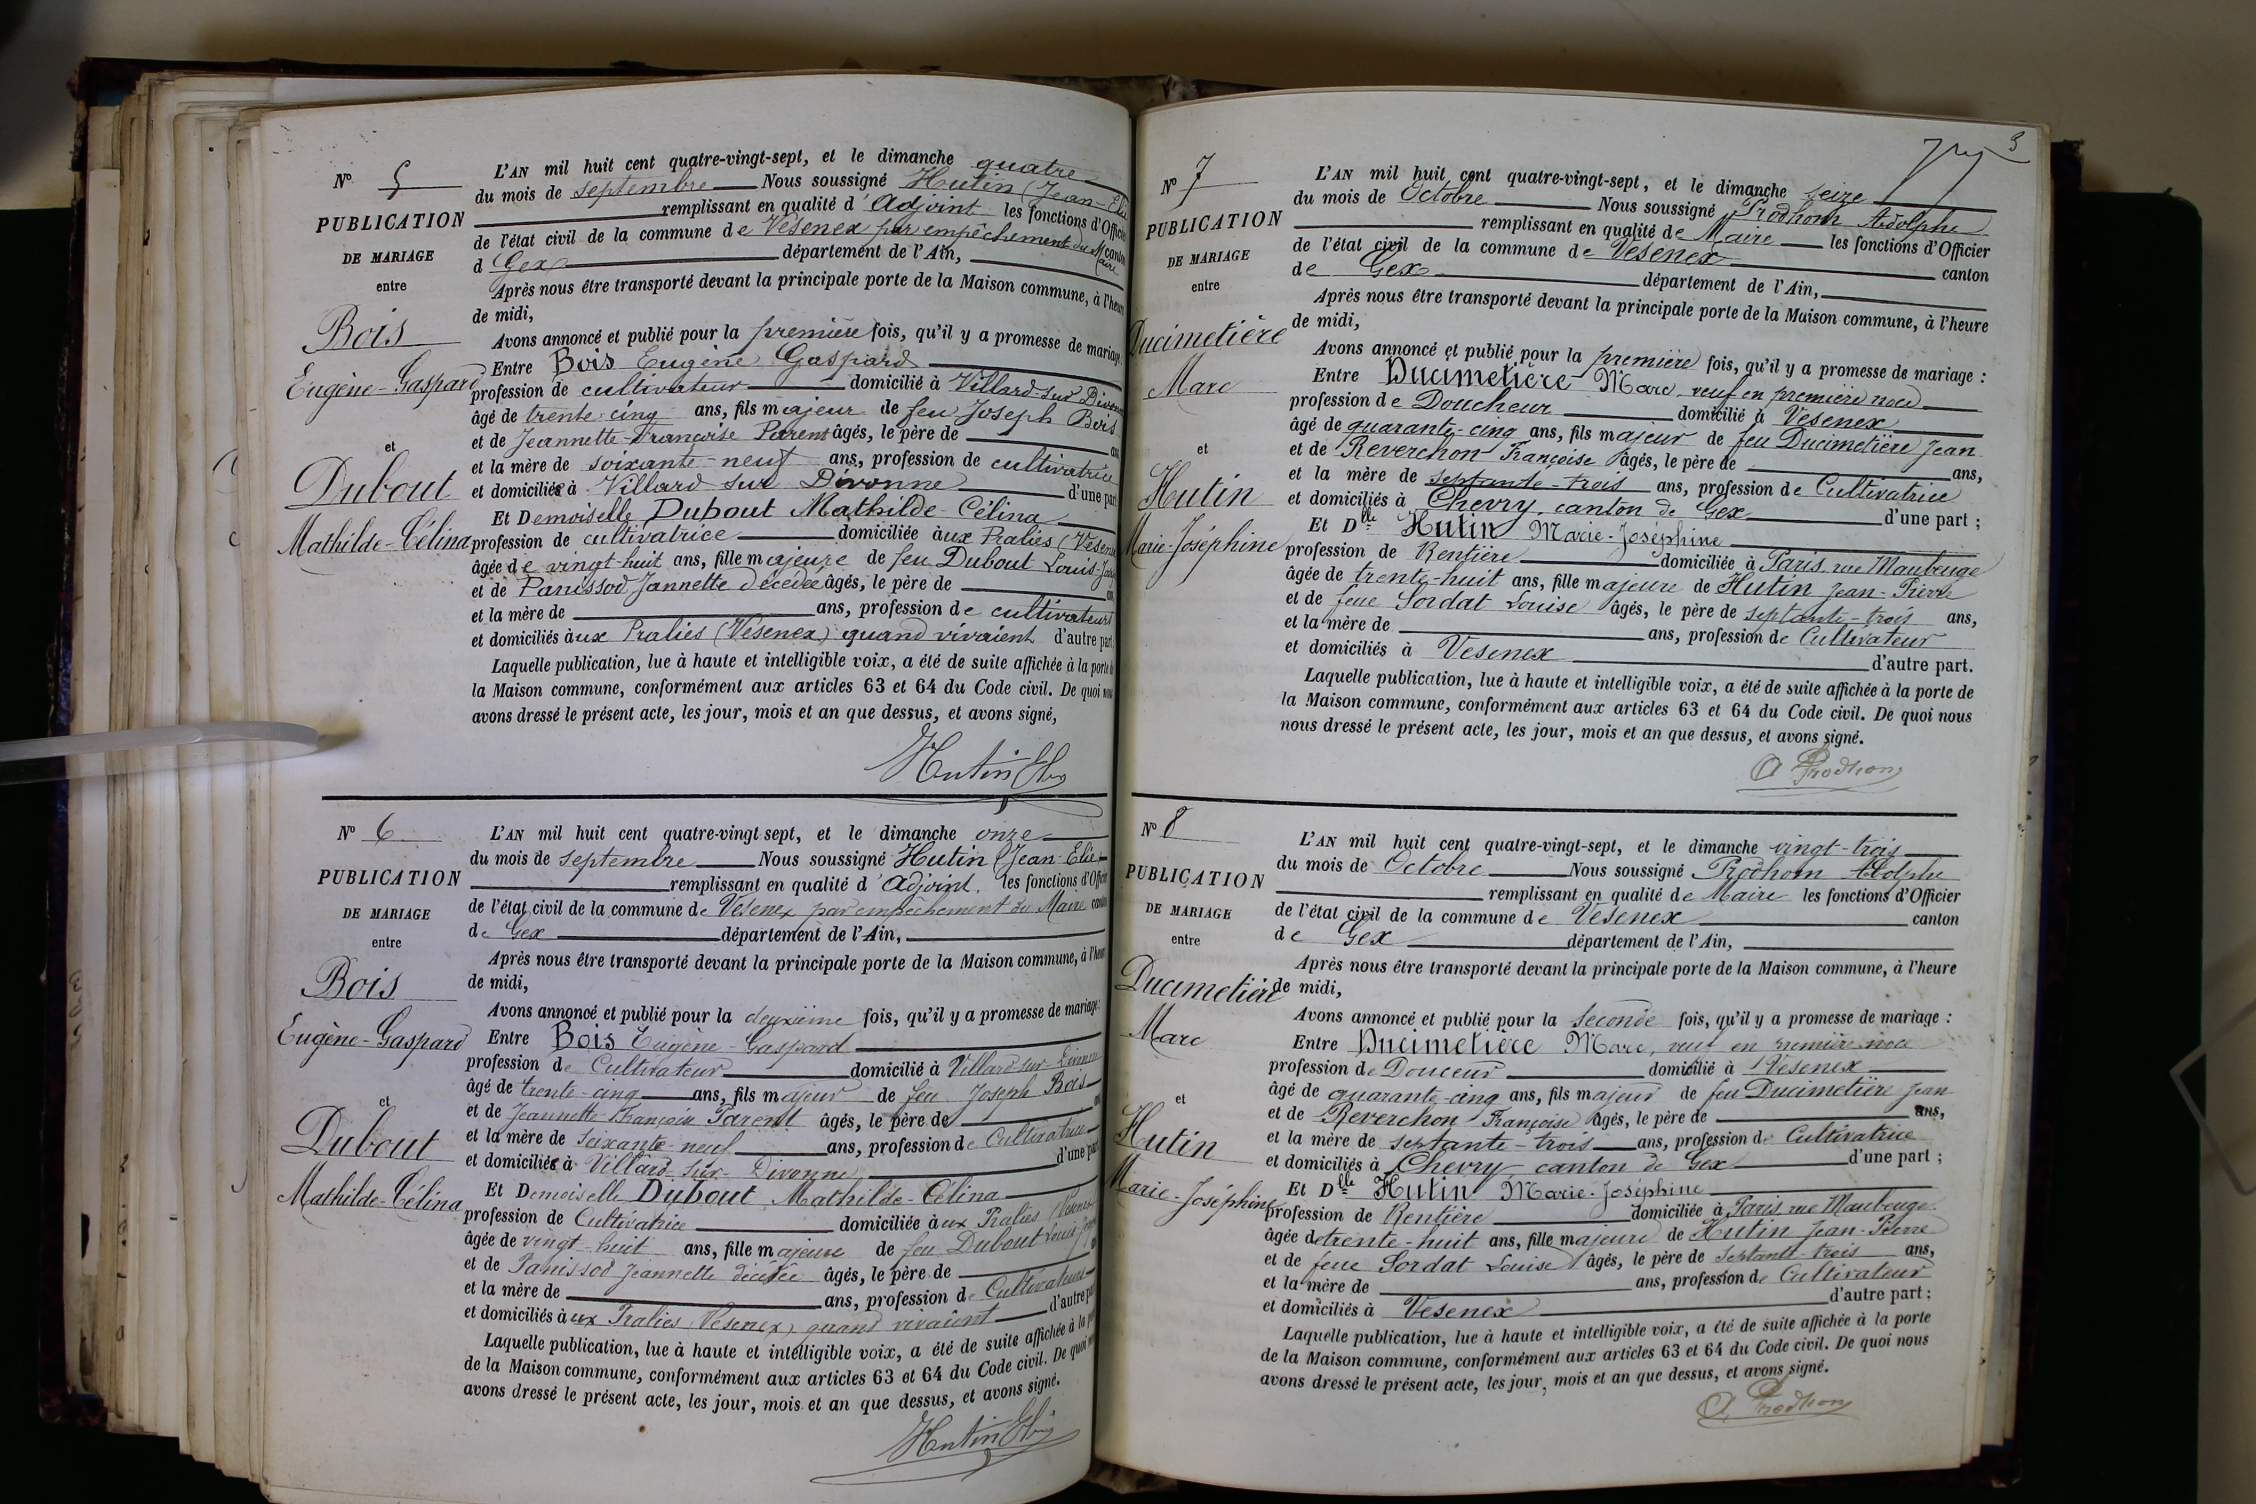 N° 5
PUBLICATION
DE MARIAGE
entre
Bois
Eugène-Gaspard
et
Dubout
Mathilde-Célina
L'AN mil huit cent quatre-vingt-sept, et le dimanche quatre
du mois de septembre Nous soussigné Hutin (Jean-Elie
remplissant en qualité d'Adjoint les fonctions d'Officier
de l'état civil de la commune de Vésenex par empêchement du Maire canton
d Gex département de l'Ain,
Après nous être transporté devant la principale porte de la Maison commune, à l'heure
de midi,
Avons annoncé et publié pour la première fois, qu'il y a promesse de mariage
Entre Bois Eugène Gaspard
profession de cultivateur domicilié à Villard-sur Divonne
âgé de trente cinq ans, fils majeur de feu Joseph Bois
et de Jeannette-Françoise Parent âgés, le père de ans
et la mère de soixante-neuf ans, profession de cultivatrice
et domiciliés à Villard sur Divonne d'une part
Et Demoiselle Dubout Mathilde-Célina
profession de cultivatrice domiciliée aux Pralies (Vésenex
âgée de vingt-huit ans, fille majeure de feu Dubout Louis
et de Panissod Jannette décédée âgés, le père de
et la mère de ans, profession de cultivateurs
et domiciliés aux Pralies (Vésenex) quand vivaient d'autre part
Laquelle publication, lue à haute et intelligible voix, a été de suite affichée à la porte de
la Maison commune, conformément aux articles 63 et 64 du Code civil. De quoi nous
avons dressé le présent acte, les jour, mois et an que dessus, et avons signé,
Hutin Elie
N° 6
PUBLICATION
DE MARIAGE
entre
Bois
Eugène-Gaspard
et
Dubout
Mathilde-Célina
L'AN mil huit cent quatre-vingt sept, et le dimanche onze
du mois de septembre Nous soussigné Hutin (Jean-Elie
remplissant en qualité d'Adjoint. les fonctions d'Officier
de l'état civil de la commune de Vesenex par empêchement du Maire canton
de Gex département de l'Ain,
Après nous être transporté devant la principale porte de la Maison commune, à l'heure
de midi,
Avons annoncé et publié pour la deuxième fois, qu'il y a promesse de mariage:
Entre Bois Eugène-Gaspard
profession de Cultivateur domicilié à Villard-sur-Divonne
âgé de trente-cinq ans, fils majeur de feu Joseph Bois
et de Jeannette-Françoise Parent âgés, le père de ans
et la mère de soixante-neuf ans, profession de Cultivatrice
et domiciliés à Villard-sur-Divonne d'une part
Et Demoiselle Dubout Mathilde-Célina
profession de Cultivatrice domiciliée aux Pralies (Vesenex
âgée de vingt-huit ans, fille majeure de feu Dubout Louis
et de Panissod Jeannette décédée âgés, le père de
et la mère de ans, profession de Cultivateurs
et domiciliés aux Pralies (Vesenex) quand vivaient d'autre part
Laquelle publication, lue à haute et intelligible voix, a été de suite affichée à la porte
de la Maison commune, conformément aux articles 63 et 64 du Code civil. De quoi nous
avons dressé le présent acte, les jour, mois et an que dessus, et avons signé.
Hutin Elie
3
N° 7
PUBLICATION
DE MARIAGE
entre
Ducimetière
Marc
et
Hutin
Marie-Joséphine
L'AN mil huit cent quatre-vingt-sept, et le dimanche seize
du mois de Octobre Nous soussigné Prodhom Adolphe
remplissant en qualité de Maire les fonctions d'Officier
de l'état civil de la commune de Vesenex canton
de Gex département de l'Ain,
Après nous être transporté devant la principale porte de la Maison commune, à l'heure
de midi,
Avons annoncé et publié pour la première fois, qu'il y a promesse de mariage :
Entre Ducimetière Marc, veuf en première noce
profession de Doucheur domicilié à Vesenex
âgé de quarante-cinq ans, fils majeur de feu Ducimetière Jean
et de Reverchon Françoise âgés, le père de ans,
et la mère de septante-trois ans, profession de Cultivatrice
et domiciliés à Chevry, canton de Gex d'une part ;
Et Dlle Hutin Marie-Joséphine
profession de Rentière domiciliée à Paris, rue Maubeuge
âgée de trente-huit ans, fille majeure de Hutin Jean-Pierre
et de feue Sordat Louise âgés, le père de septante-trois ans,
et la mère de ans, profession de Cultivateur
et domiciliés à Vesenex d'autre part.
Laquelle publication, lue à haute et intelligible voix, a été de suite affichée à la porte de
la Maison commune, conformément aux articles 63 et 64 du Code civil. De quoi nous
nous dressé le présent acte, les jour, mois et an que dessus, et avons signé.
A Prodhom
N° 8
PUBLICATION
DE MARIAGE
entre
Ducimetière
Marc
et
Hutin
Marie-Joséphine
L'AN mil huit cent quatre-vingt-sept, et le dimanche vingt-trois
du mois de Octobre Nous soussigné Prodhom Adolphe
remplissant en qualité de Maire les fonctions d'Officier
de l'état civil de la commune de Vesenex canton
de Gex département de l'Ain,
Après nous être transporté devant la principale porte de la Maison commune, à l'heure
de midi,
Avons annoncé et publié pour la seconde fois, qu'il y a promesse de mariage :
Entre Ducimetière Marc, veuf en première noce
profession de Douceur domicilié à Vesenex
âgé de quarante-cinq ans, fils majeur de feu Ducimetière Jean
et de Reverchon Françoise âgés, le père de ans,
et la mère de septante-trois ans, profession de Cultivatrice
et domiciliés à Chevry canton de Gex d'une part ;
Et Dlle Hutin Marie-Joséphine
profession de Rentière domiciliée à Paris, rue Maubeuge
âgée de trente-huit ans, fille majeure de Hutin Jean-Pierre
et de feue Sordat Louise âgés, le père de septante-trois ans,
et la mère de ans, profession de Cultivateur
et domiciliés à Vesenex d'autre part ;
Laquelle publication, lue à haute et intelligible voix, a été de suite affichée à la porte
de la Maison commune, conformément aux articles 63 et 64 du Code civil. De quoi nous
avons dressé le présent acte, les jour, mois et an que dessus, et avons signé.
A Prodhom